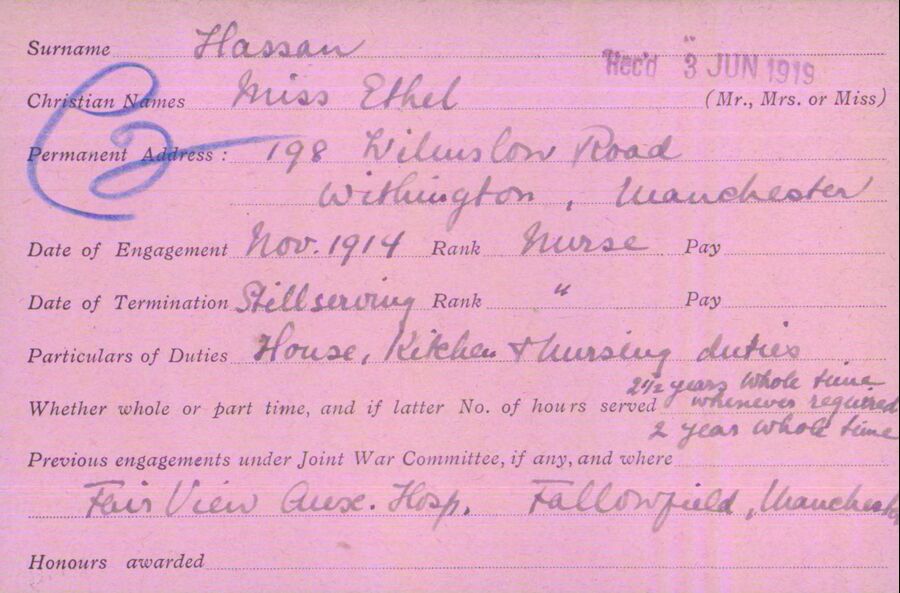 Surname Hassan
Rec'd 3 JUN 1919
Christian Names Miss Ethel (Mr., Mrs. or Miss)
Permanent Address: 198 Wilmslow Road
Withington, Manchester
Date of Engagement Nov. 1914 Rank Nurse Pay
Date of Termination Still serving Rank " Pay
Particulars of Duties House, Kitchen & Nursing duties
2 1/2 years Whole time
Whether whole or part time, and if latter No. of hours served whenever required
2 year Whole time
Previous engagements under Joint War Committee, if any, and where
Fair View Aux. Hosp. Fallowfield, Manchester
Honours awarded